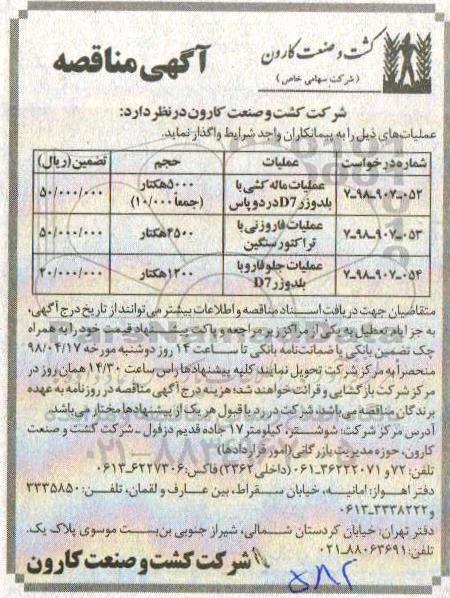 کشت و صنعت کارون
(شرکت سهامی خاص)
آگهی مناقصه
شرکت کشت و صنعت کارون در نظر دارد:
عملیات‌های ذیل را به پیمانکاران واجد شرایط واگذار نماید.
شماره درخواست عملیات حجم تضمین (ریال)
۷-۹۸-۹۰۷-۰۵۲ عملیات ماله کشی با بلدوزر D7 در دو پاس ۵۰۰۰ هکتار (جمعاً ۱۰/۰۰۰) ۵۰/۰۰۰/۰۰۰
۷-۹۸-۹۰۷-۰۵۳ عملیات فاروزنی با تراکتور سنگین ۴۵۰۰ هکتار ۵۰/۰۰۰/۰۰۰
۷-۹۸-۹۰۷-۰۵۴ عملیات جلو فارو با بلدوزر D7 ۱۲۰۰ هکتار ۲۰/۰۰۰/۰۰۰
متقاضیان جهت دریافت اسناد مناقصه و اطلاعات بیشتر می‌توانند از تاریخ درج آگهی،
به جز ایام تعطیل به یکی از مراکز زیر مراجعه و پاکت پیشنهاد قیمت خود را به همراه
چک تضمین بانکی یا ضمانت‌نامه بانکی تا ساعت ۱۴ روز دوشنبه مورخه ۹۸/۰۴/۱۷
منحصراً به مرکز شرکت تحویل نمایند کلیه پیشنهادها راس ساعت ۱۴/۳۰ همان روز در
مرکز شرکت بازگشایی و قرائت خواهند شد؛ هزینه درج آگهی مناقصه در روزنامه به عهده
برندگان مناقصه می‌باشد، شرکت در رد یا قبول هر یک از پیشنهادها مختار می‌باشد.
آدرس مرکز شرکت: شوشتر، کیلومتر ۱۷ جاده قدیم دزفول - شرکت کشت و صنعت
کارون، حوزه مدیریت بازرگانی (امور قراردادها)
تلفن: ۷۲ و ۳۶۲۲۲۰۷۱-۰۶۱ (داخلی ۲۳۶۲) فاکس: ۶۲۲۷۳۰۶-۰۶۱۳
دفتر اهواز: امانیه، خیابان سقراط، بین عارف و لقمان، تلفن: ۳۳۳۵۸۵۰
و ۳۳۳۸۲۲۲-۰۶۱۳
دفتر تهران: خیابان کردستان شمالی، شیراز جنوبی بن‌بست موسوی پلاک یک.
تلفن: ۸۸۰۶۳۶۹۱-۰۲۱
شرکت کشت و صنعت کارون
۵۸۲